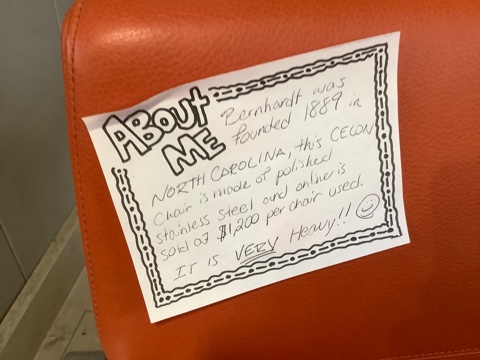 About
Me
Bernhardt was
founded 1889 in
NORTH CAROLINA, this CELON
Chair is made of polished
stainless steel and online is
sold at $1,200 per chair used.
IT is VERY Heavy!!